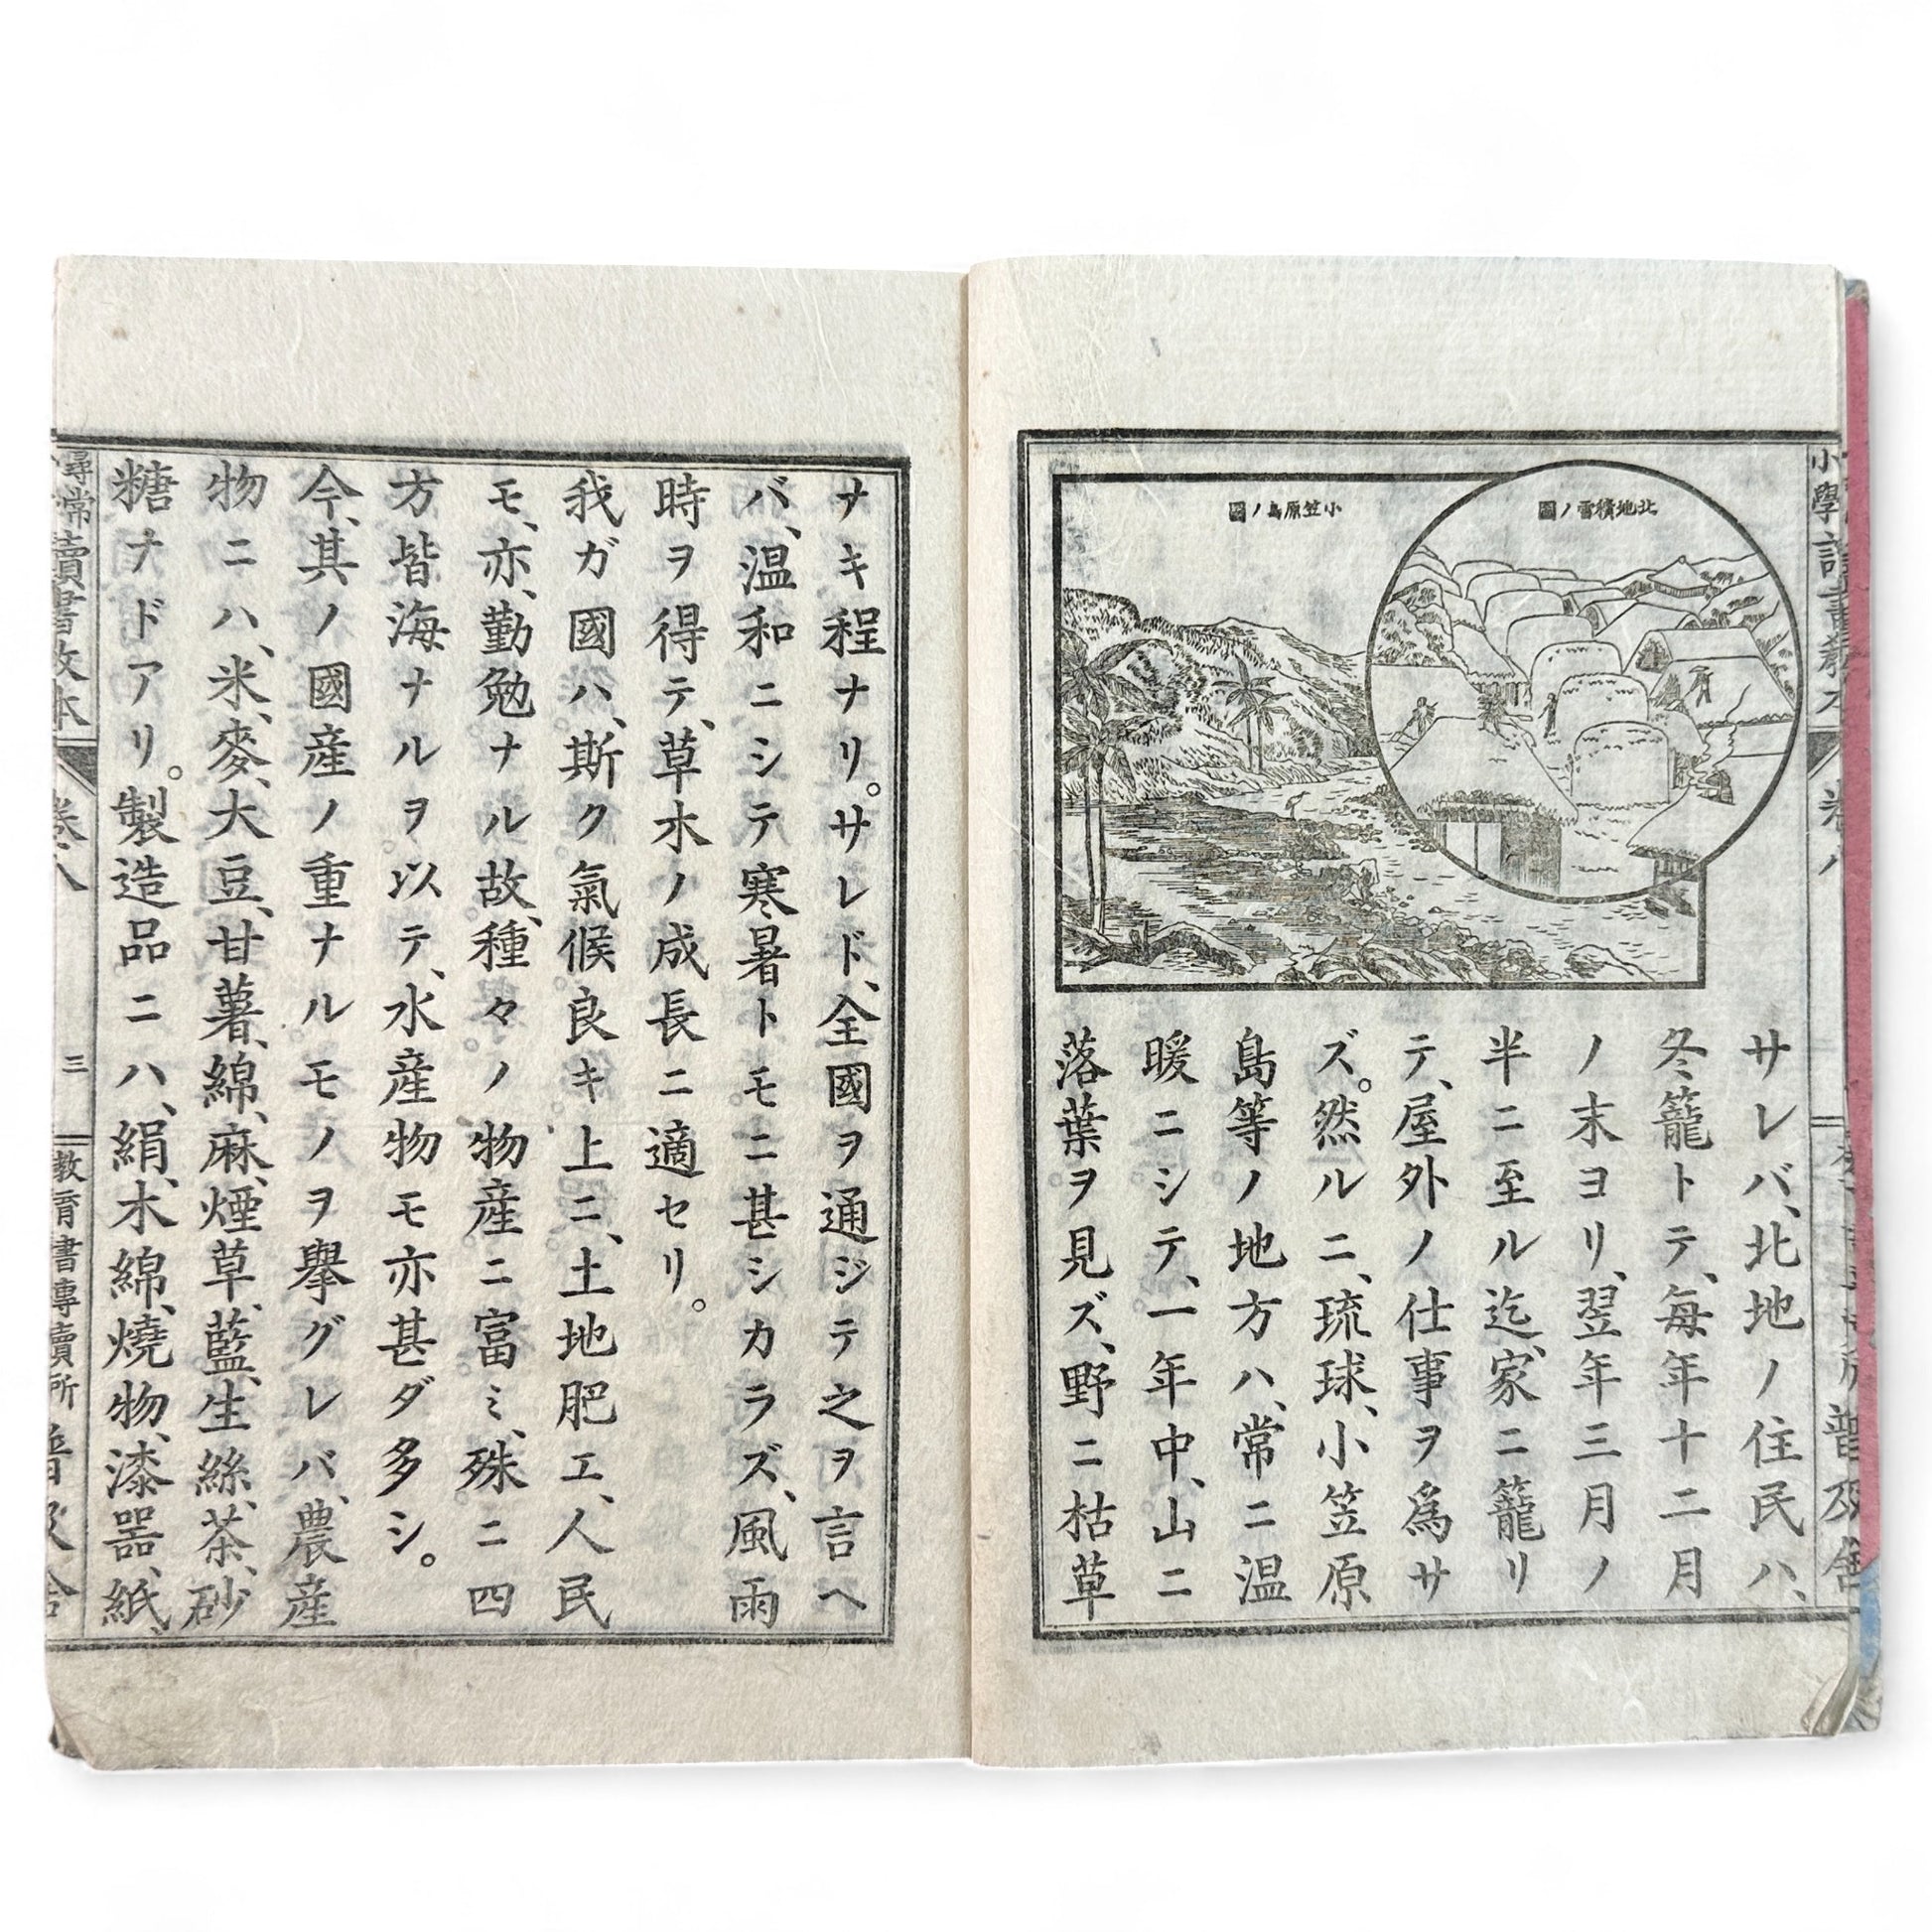 北地積雪ノ圖
小笠原島ノ圖
サレバ、北地ノ住民ハ、
冬籠トテ、毎年十二月
ノ末ヨリ、翌年三月ノ
半ニ至ル迄、家ニ籠リ
テ、屋外ノ仕事ヲ爲サ
ズ。然ルニ、琉球、小笠原
島等ノ地方ハ、常ニ温
暖ニシテ、一年中、山ニ
落葉ヲ見ズ、野ニ枯草
ナキ程ナリ。サレド、全國ヲ通ジテ之ヲ言ヘ
バ、温和ニシテ寒暑トモニ甚シカラズ、風雨
時ヲ得テ、草木ノ成長ニ適セリ。
我ガ國ハ、斯ク氣候良キ上ニ、土地肥エ、人民
モ、亦、勤勉ナル故、種々ノ物産ニ富ミ、殊ニ四
方皆海ナルヲ以テ、水産物モ亦甚ダ多シ。
今、其ノ國産ノ重ナルモノヲ擧グレバ、農産
物ニハ、米、麥、大豆、甘薯、綿、麻、煙草、藍、生絲、茶、砂
糖ナドアリ。製造品ニハ、絹、木綿、燒物、漆器、紙、
尋常
讀書教本
卷八
三
教育書專賣所
普及舍